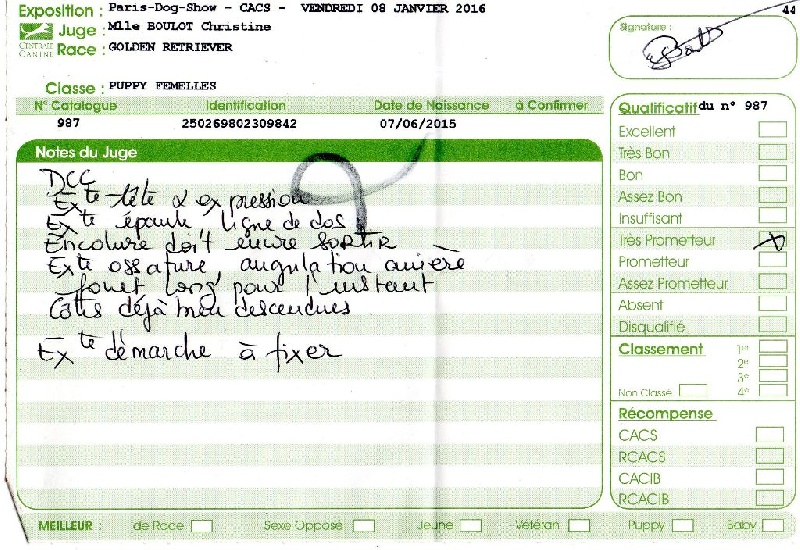 Exposition : Paris-Dog-Show - CACS - VENDREDI 08 JANVIER 2016
44
Juge : Mlle BOULOT Christine
CENTRALE CANINE
Race : GOLDEN RETRIEVER
Signature :
Classe : PUPPY FEMELLES
N° Catalogue Identification Date de Naissance à Confirmer
987 250269802309842 07/06/2015
Notes du Juge
DCC
Exte tête & expression
Exte épaule, ligne de dos
Encolure doit encore SORTIR
Exte ossature, angulation arrière
fouet long pour l'instant
Côtes déjà bien descendues
Exte démarche à fixer
Qualificatif du n° 987
Excellent
Très Bon
Bon
Assez Bon
Insuffisant
Très Prometteur
Prometteur
Assez Prometteur
Absent
Disqualifié
Classement 1er
2e
3e
Non Classé 4e
Récompense
CACS
RCACS
CACIB
RCACIB
MEILLEUR : de Race Sexe Opposé Jeune Vétéran Puppy Baby